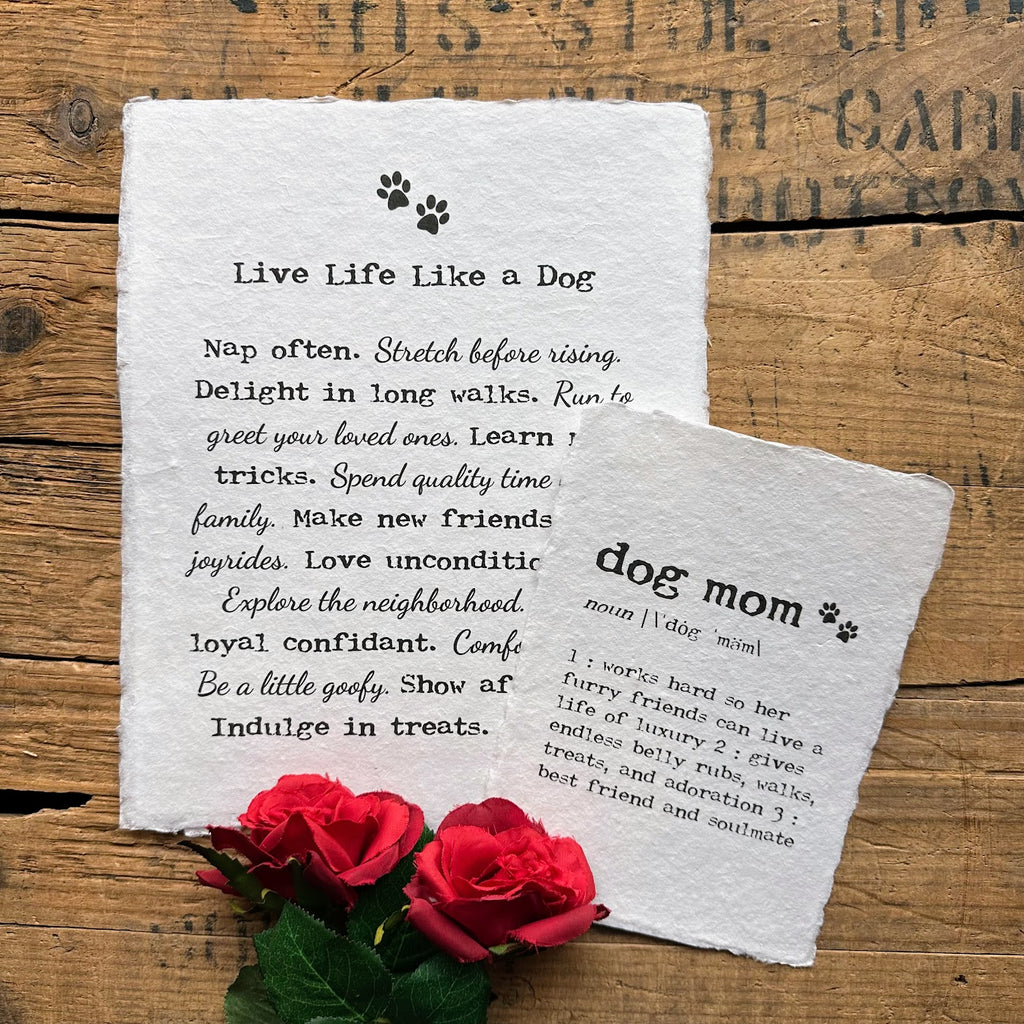 Live Life Like a Dog
Nap often. Stretch before rising.
Delight in long walks. Run to
greet your loved ones. Learn
tricks. Spend quality time
family. Make new friends
joyrides. Love
Explore the neighborhood.
loyal confidant.
Be a little goofy. Show
Indulge in treats.
dog mom
noun |\ˈdȯg ˈmäm|
1 : works hard so her
furry friends can live a
life of luxury 2 : gives
endless belly rubs, walks,
treats, and adoration 3 :
best friend and soulmate